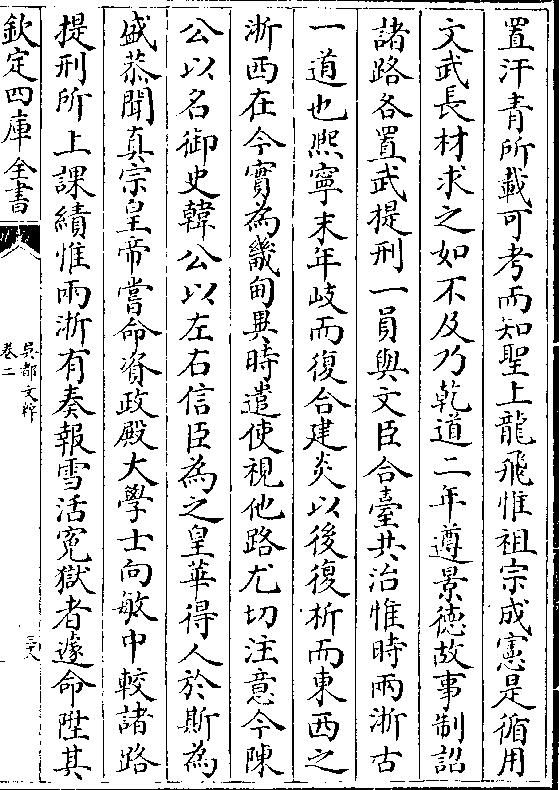 置汗青所載可考而知聖上龍飛惟祖宗成憲是循用
文武長材求之如不及乃乾道二年遵景德故事制詔
諸路各置武提刑一員與文臣合臺共治惟時兩浙古
一道也熈寧末年岐而復合建炎以後復析而東西之
浙西在今實為畿甸異時遣使視他路尤切注意今陳
公以名御史韓公以左右信臣為之皇華得人於斯為
盛恭聞真宗皇帝嘗命資政殿大學士向敏中較諸路
提刑所上課績惟兩浙有奏報雪活冤獄者遂命陞其
欽定四庫全書
吳都文粹
卷二
三十八